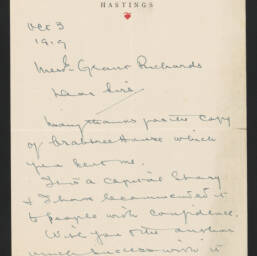 HASTINGS
Oct 3
1919
Messrs Grant Richards
Dear Sirs
Many thanks for the copy
of Crabtree House which
you sent me.
It is a capital story
& I have recommended it
to people with confidence.
Wish you & the author
much success with it